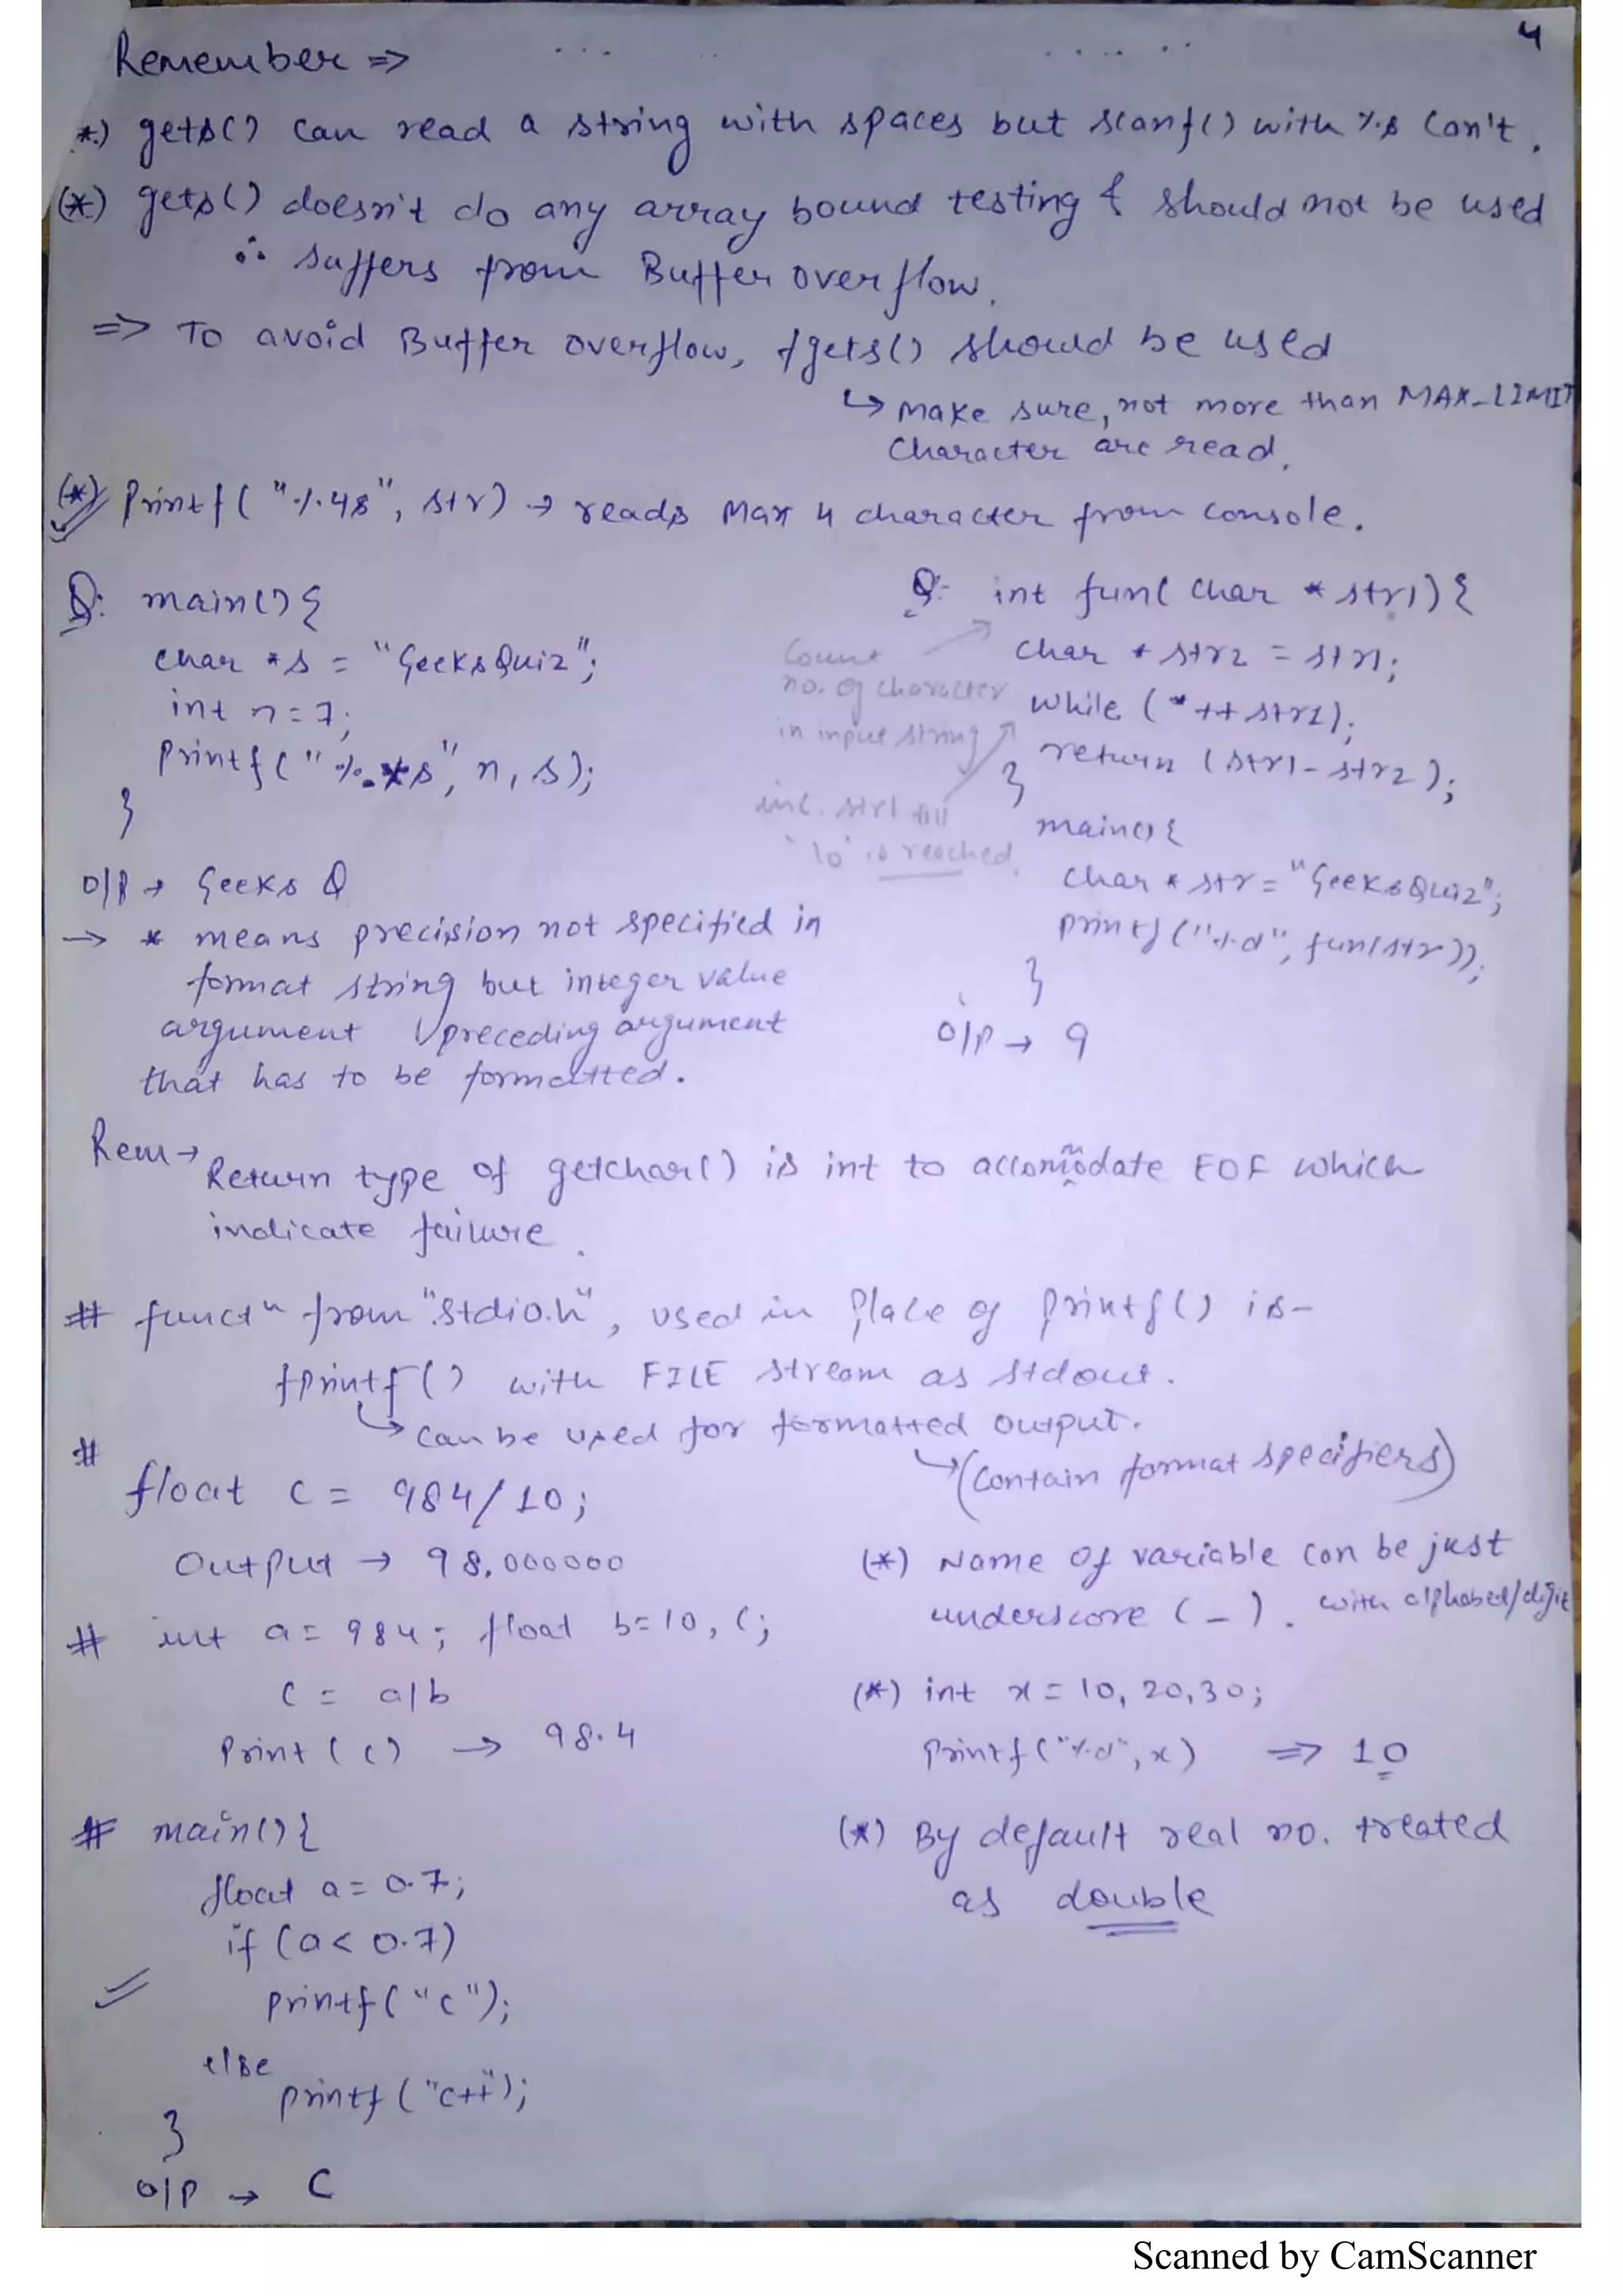 4
Remember ⇒
*) gets() can read a string with spaces but scanf() with %s can't.
(*) gets() doesn't do any array bound testing & should not be used
∴ suffers from Buffer overflow.
⇒ To avoid Buffer overflow, fgets() should be used
↳ Make sure, not more than MAX_LIMIT
Character are read.
(*) Printf("%4s", str) → reads Max 4 character from console.
Q: main(){
char *s = "GeeksQuiz";
int n=7;
Printf("%.*s", n, s);
}
O/P → Geeks Q
→ * means precision not specified in
format string but integer value
argument preceding argument
that has to be formatted.
Q:- int fun( char *str1){
char * str2 = str1;
while (*++str1);
return (str1-str2);
}
Count
no. of character
in input string
inc. str1 till
'\0' is reached.
main(){
char * str = "GeeksQuiz";
printf("%d", fun(str));
}
O/P → 9
Rem → Return type of getchar() is int to accomodate EOF which
m
indicate failure.
# functn from "stdio.h", used in Place of Printf() is-
fprintf() with FILE stream as stdout.
↳ can be used for formatted output.
↳ (Contain format specifiers)
# float c = 984/10;
Output → 98.000000
# int a = 984; float b=10, c;
c = a/b
Print (c) → 98.4
# main(){
float a = 0.7;
if (a< 0.7)
printf("c");
else
printf("c++");
}
O/P → C
(*) Name of variable can be just
underscore ( _ ). with alphabet/digit
(*) int x = 10, 20, 30;
printf("%d", x) ⇒ 10
(*) By default real no. treated
as double
Scanned by CamScanner